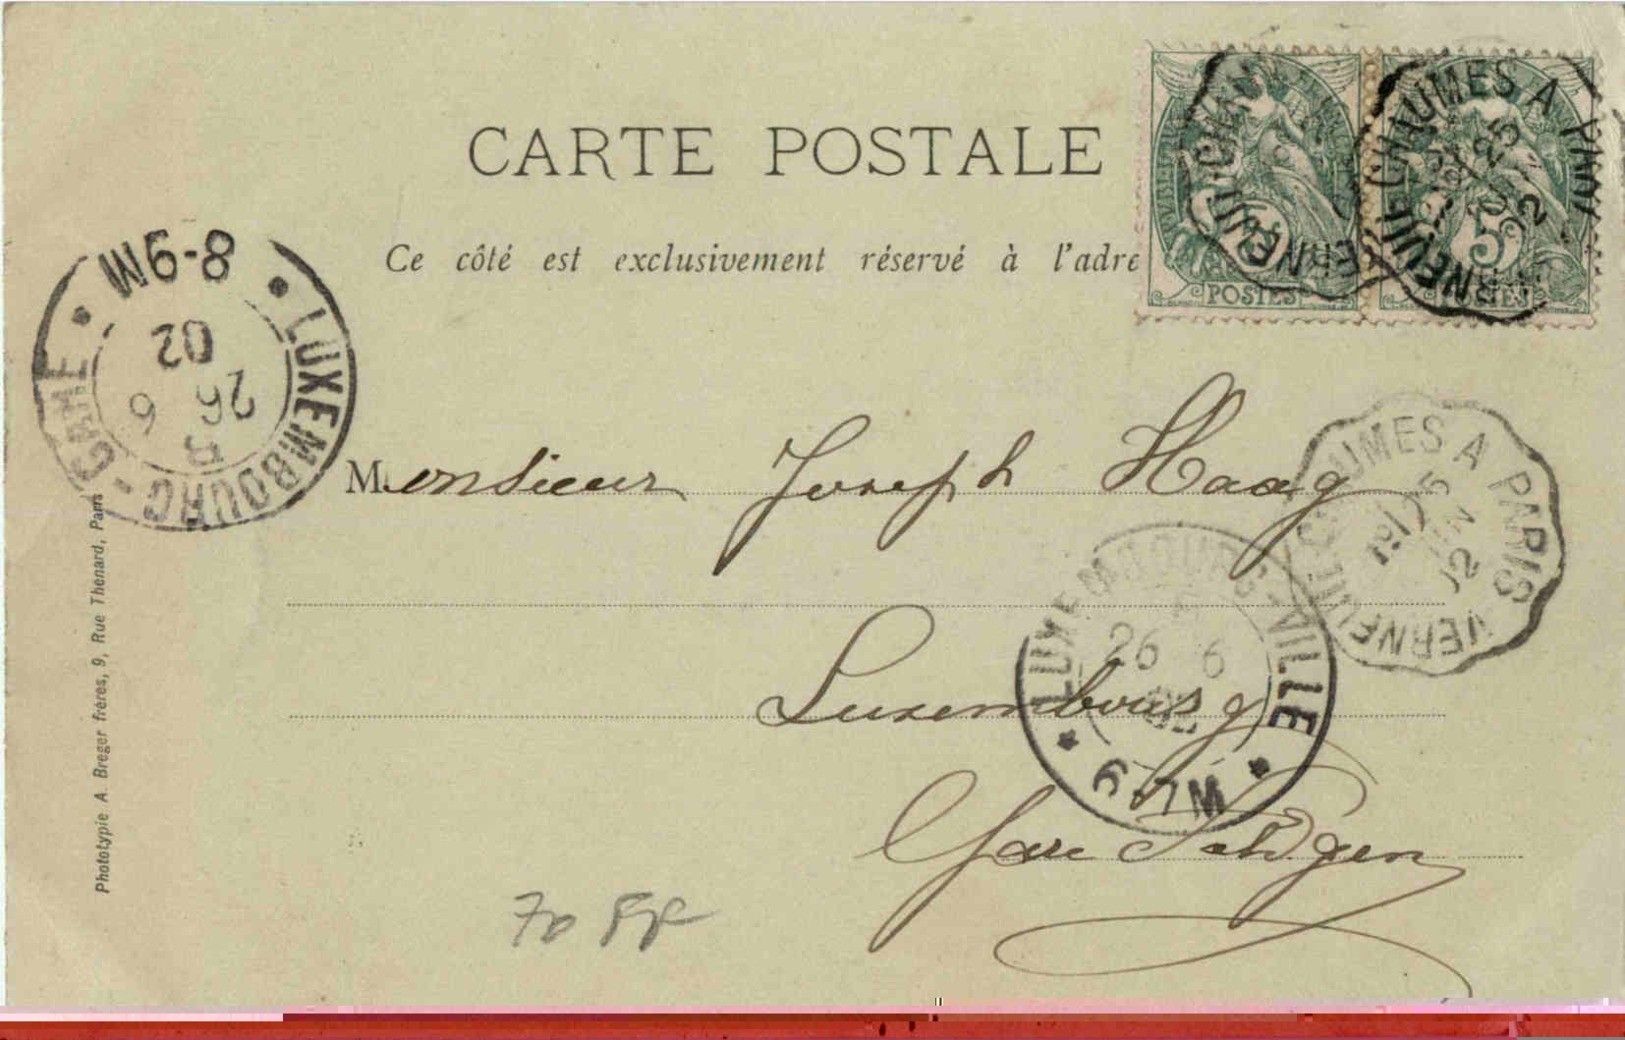 CARTE POSTALE
Ce côté est exclusivement réservé à l'adre
POSTES
5
POSTES
VERNEUIL CHAUMES A PARIS
25
02
8-9M
LUXEMBOURG-GARE
26 6
02
Monsieur Joseph Haag
CHAUMES A PARIS VERNEUIL
25
LUXEMBOURG-VILLE
26 6
02
Luxembourg
Gare
70
Phototypie A. Breger frères, 9, Rue Thénard, Paris